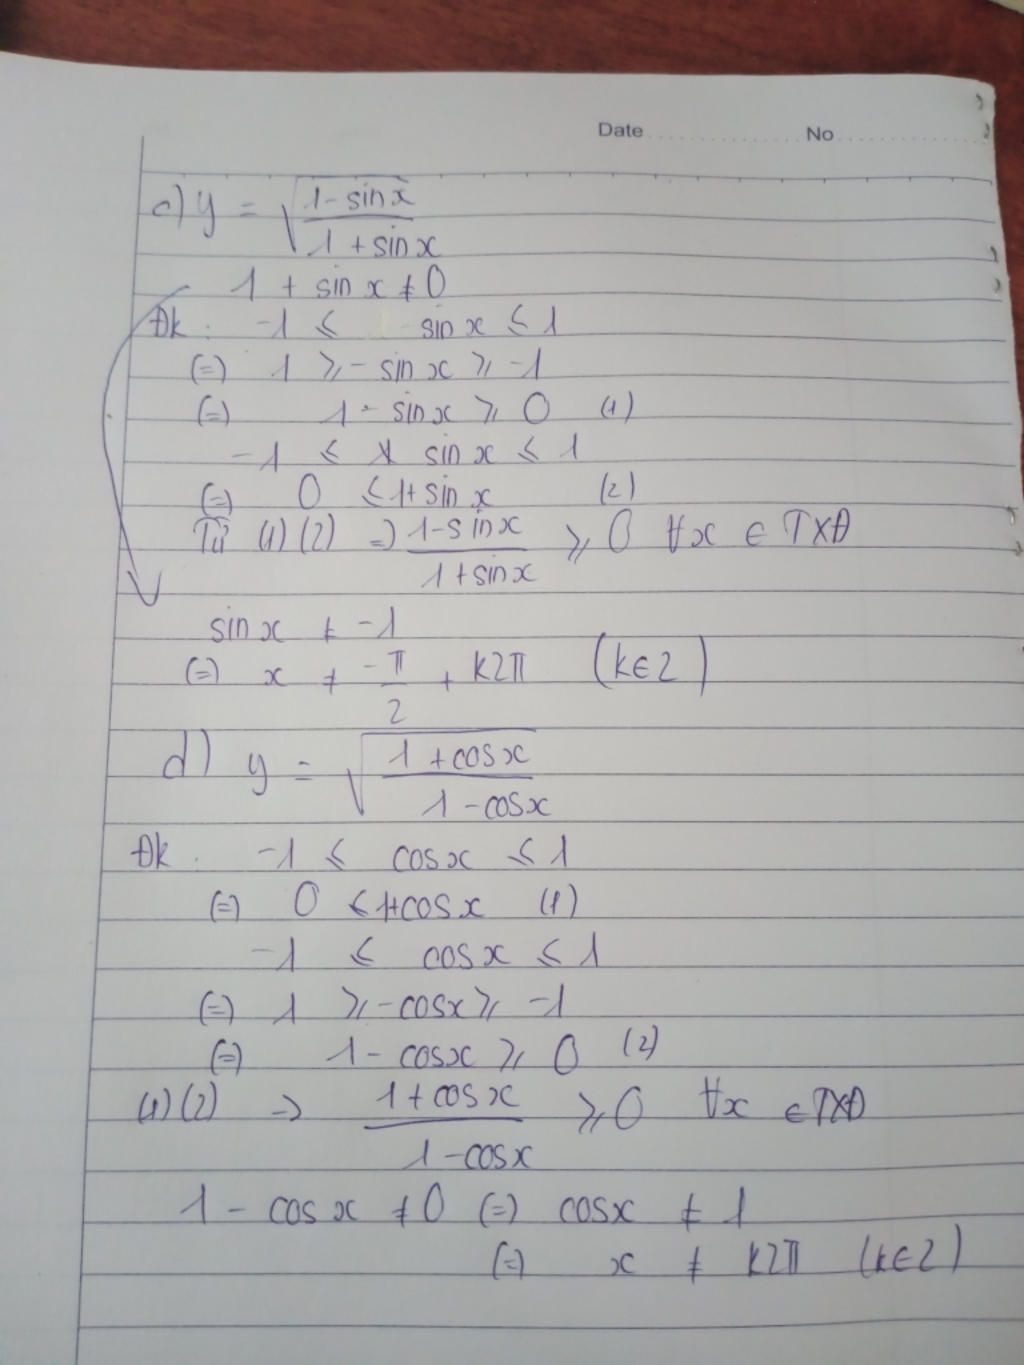 Date No
c) y = √((1-sin x)/(1+sin x))
1 + sin x ≠ 0
Đk: -1 ≤ sin x ≤ 1
(=) 1 ≥ -sin x ≥ -1
(=) 1 - sin x ≥ 0 (1)
-1 ≤ sin x ≤ 1
(=) 0 ≤ 1+sin x (2)
Từ (1) (2) => (1-sin x)/(1+sin x) ≥ 0 ∀x ∈ TXĐ
sin x ≠ -1
(=) x ≠ -π/2 + k2π (k∈Z)
d) y = √((1+cos x)/(1-cos x))
Đk: -1 ≤ cos x ≤ 1
(=) 0 ≤ 1+cos x (1)
-1 ≤ cos x ≤ 1
(=) 1 ≥ -cos x ≥ -1
(=) 1 - cos x ≥ 0 (2)
(1) (2) -> (1+cos x)/(1-cos x) ≥ 0 ∀x ∈ TXĐ
1 - cos x ≠ 0 (=) cos x ≠ 1
(=) x ≠ k2π (k∈Z)